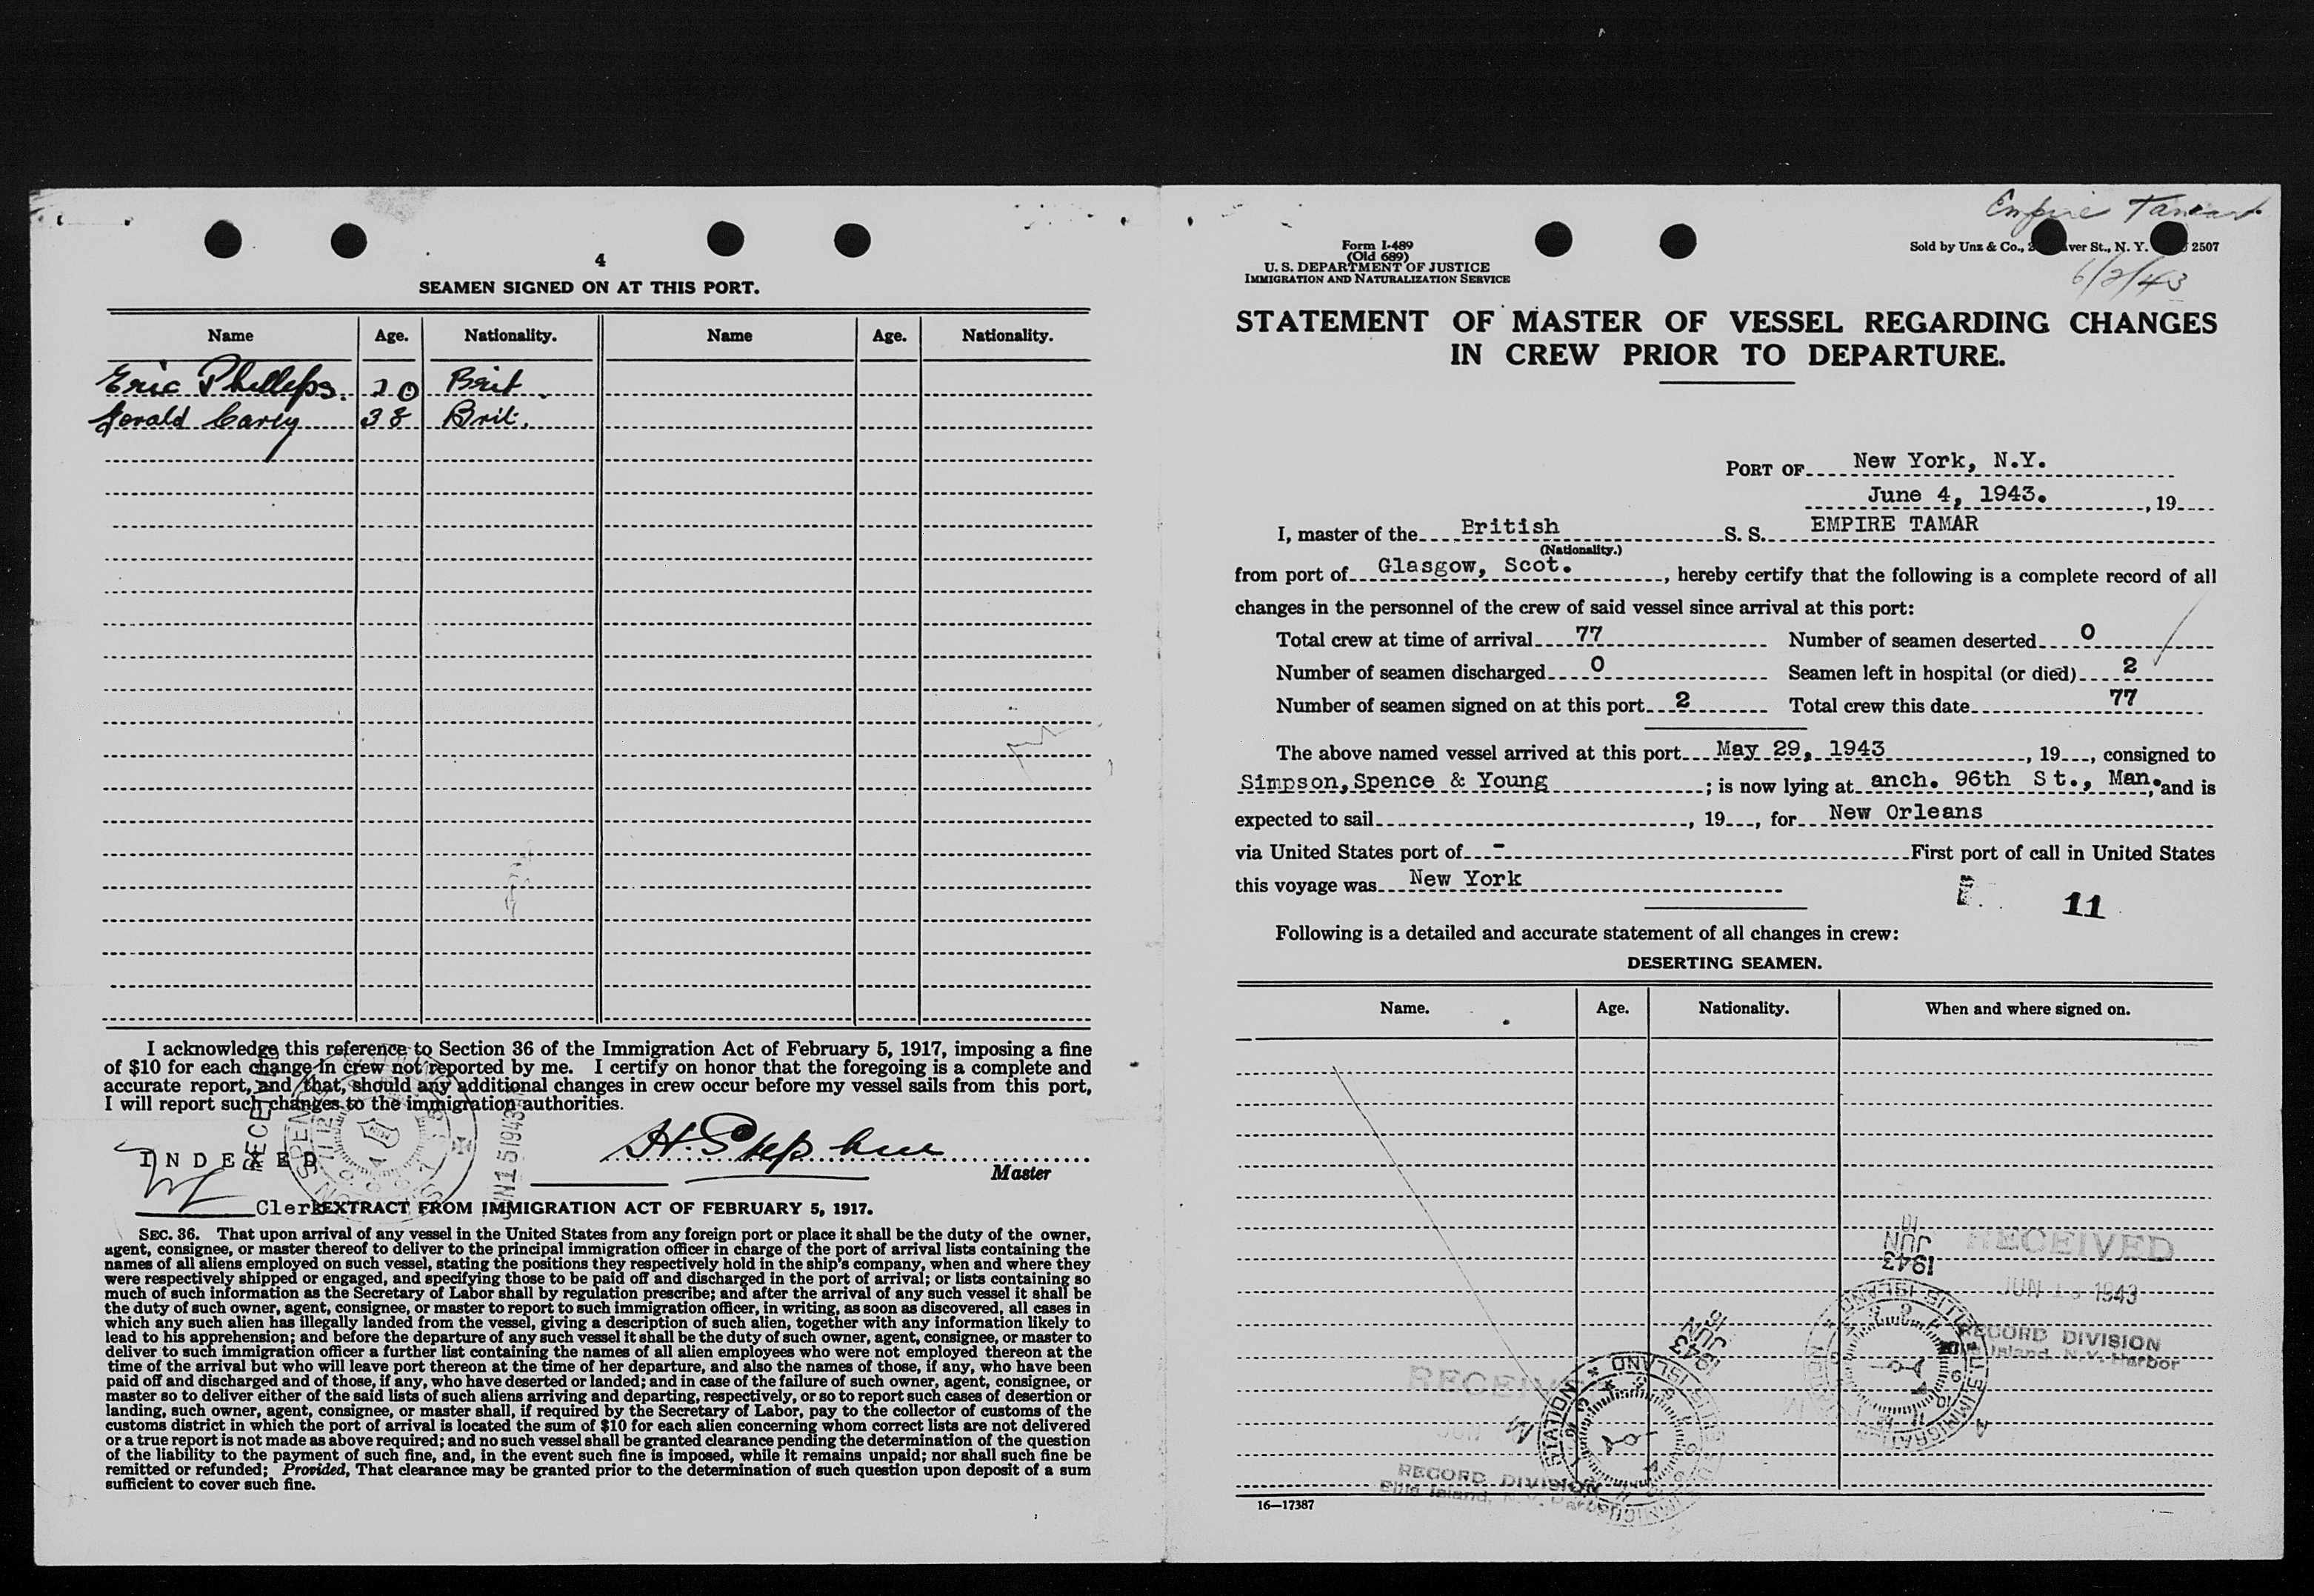 4
SEAMEN SIGNED ON AT THIS PORT.
Name Age. Nationality. Name Age. Nationality.
Eric Phillips. 20 Brit.
Gerald Carey 38 Brit.
I acknowledge this reference to Section 36 of the Immigration Act of February 5, 1917, imposing a fine
of $10 for each change in crew not reported by me. I certify on honor that the foregoing is a complete and
accurate report, and that, should any additional changes in crew occur before my vessel sails from this port,
I will report such changes to the immigration authorities.
INDEXED
Master
Clerk
EXTRACT FROM IMMIGRATION ACT OF FEBRUARY 5, 1917.
SEC. 36. That upon arrival of any vessel in the United States from any foreign port or place it shall be the duty of the owner,
agent, consignee, or master thereof to deliver to the principal immigration officer in charge of the port of arrival lists containing the
names of all aliens employed on such vessel, stating the positions they respectively hold in the ship's company, when and where they
were respectively shipped or engaged, and specifying those to be paid off and discharged in the port of arrival; or lists containing so
much of such information as the Secretary of Labor shall by regulation prescribe; and after the arrival of any such vessel it shall be
the duty of such owner, agent, consignee, or master to report to such immigration officer, in writing, as soon as discovered, all cases in
which any such alien has illegally landed from the vessel, giving a description of such alien, together with any information likely to
lead to his apprehension; and before the departure of any such vessel it shall be the duty of such owner, agent, consignee, or master to
deliver to such immigration officer a further list containing the names of all alien employees who were not employed thereon at the
time of the arrival but who will leave port thereon at the time of her departure, and also the names of those, if any, who have been
paid off and discharged and of those, if any, who have deserted or landed; and in case of the failure of such owner, agent, consignee, or
master so to deliver either of the said lists of such aliens arriving and departing, respectively, or so to report such cases of desertion or
landing, such owner, agent, consignee, or master shall, if required by the Secretary of Labor, pay to the collector of customs of the
customs district in which the port of arrival is located the sum of $10 for each alien concerning whom correct lists are not delivered
or a true report is not made as above required; and no such vessel shall be granted clearance pending the determination of the question
of the liability to the payment of such fine, and, in the event such fine is imposed, while it remains unpaid; nor shall such fine be
remitted or refunded; Provided, That clearance may be granted prior to the determination of such question upon deposit of a sum
sufficient to cover such fine.
Empire Tamar
Form I-489
(Old 689)
U. S. DEPARTMENT OF JUSTICE
IMMIGRATION AND NATURALIZATION SERVICE
Sold by Unz & Co., St., N. Y. 2507
6/2/43
STATEMENT OF MASTER OF VESSEL REGARDING CHANGES
IN CREW PRIOR TO DEPARTURE.
PORT OF New York, N.Y.
June 4, 1943. , 19
I, master of the British S. S. EMPIRE TAMAR
(Nationality.)
from port of Glasgow, Scot. , hereby certify that the following is a complete record of all
changes in the personnel of the crew of said vessel since arrival at this port:
Total crew at time of arrival 77 Number of seamen deserted 0
Number of seamen discharged 0 Seamen left in hospital (or died) 2
Number of seamen signed on at this port 2 Total crew this date 77
The above named vessel arrived at this port May 29, 1943 , 19 , consigned to
Simpson, Spence & Young ; is now lying at anch. 96th St., Man. , and is
expected to sail , 19 , for New Orleans
via United States port of - First port of call in United States
this voyage was New York
11
Following is a detailed and accurate statement of all changes in crew:
DESERTING SEAMEN.
Name. Age. Nationality. When and where signed on.
RECEIVED
JUN 1943
RECORD DIVISION
Ellis Island, N.Y. Harbor
RECORD DIVISION
16—17387